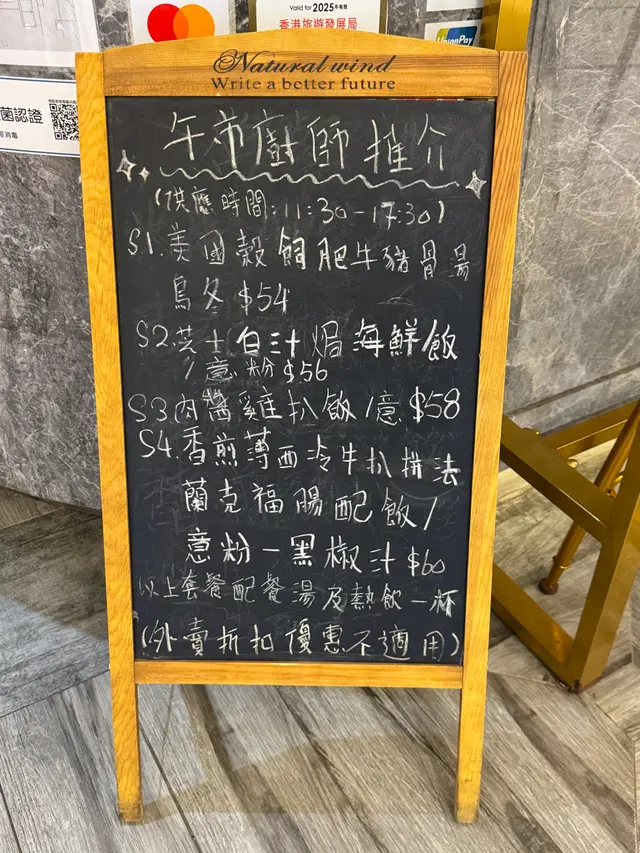 Valid for 2025年有效
香港旅遊發展局
UnionPay
菌認證
Natural wind
Write a better future
午市廚師推介
(供應時間:11:30-17:30)
S1.美國穀飼肥牛豬骨湯
烏冬 $54
S2.芝士白汁焗海鮮飯
/意粉 $56
S3.肉醬雞扒飯/意 $58
S4.香煎薄西冷牛扒拼法
蘭克福腸配飯/
意粉-黑椒汁 $60
以上套餐配餐湯及熱飲一杯
(外賣折扣優惠不適用)